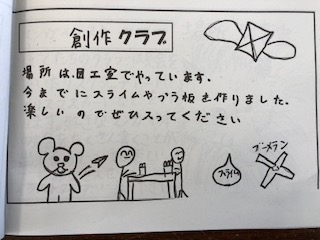 創作クラブ
場所は、図工室でやっています。
今までにスライムやプラ板を作りました。
楽しいのでぜひ入ってください
スライム
ブーメラン